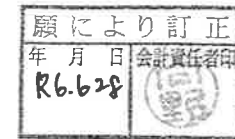 願により訂正
年月日 会計責任者印
R6.6.28